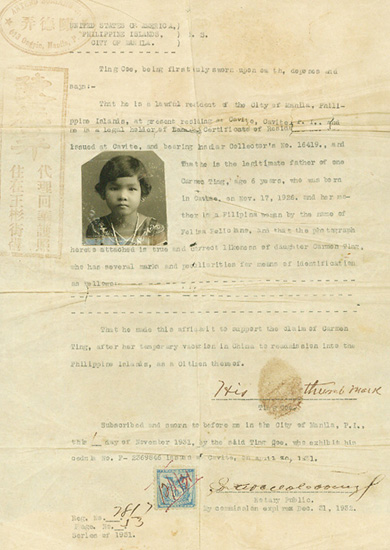 UNITED STATES OF AMERICA,)
PHILIPPINE ISLANDS, ) S. S.
CITY OF MANILA. )
Ting Coe, being first duly sworn upon oath, deposes and
says:-
That he is a lawful resident of the City of Manila, Phili-
ppine Islands, at present residing Cavite, Cavite,
he is a legal holder of Certificate of Reside
issued at Cavite, and bearing Insular Collector's No. 16419, and
That he is the legitimate father of one
Carmen Ting, age 5 years, who was born
in Cavite, on Nov. 17, 1926, and her mo-
ther is a Filipina woman by the name of
Felisa and that the photograph
hereto attached is true and correct likeness of daughter Carmen Ting,
who has several marks and peculiarities for means of identification
as follows:
That he made this affidavit to support the claim of Carmen
Ting, after her temporary vacation in China to readmission into the
Philippine Islands, as a Citizen thereof.
His thumb mark
Ting Coe.
Subscribed and sworn to before me in the City of Manila, P.I.,
this day of November 1931, by the said Ting Coe, who exhibits his
cedula No. F- issued at Cavite, on 1931.
Notary Public.
My commission expires Dec. 31, 1932.
Reg. No. 7817
Page. No. 13
Series of 1931.
代理回
住在王彬街